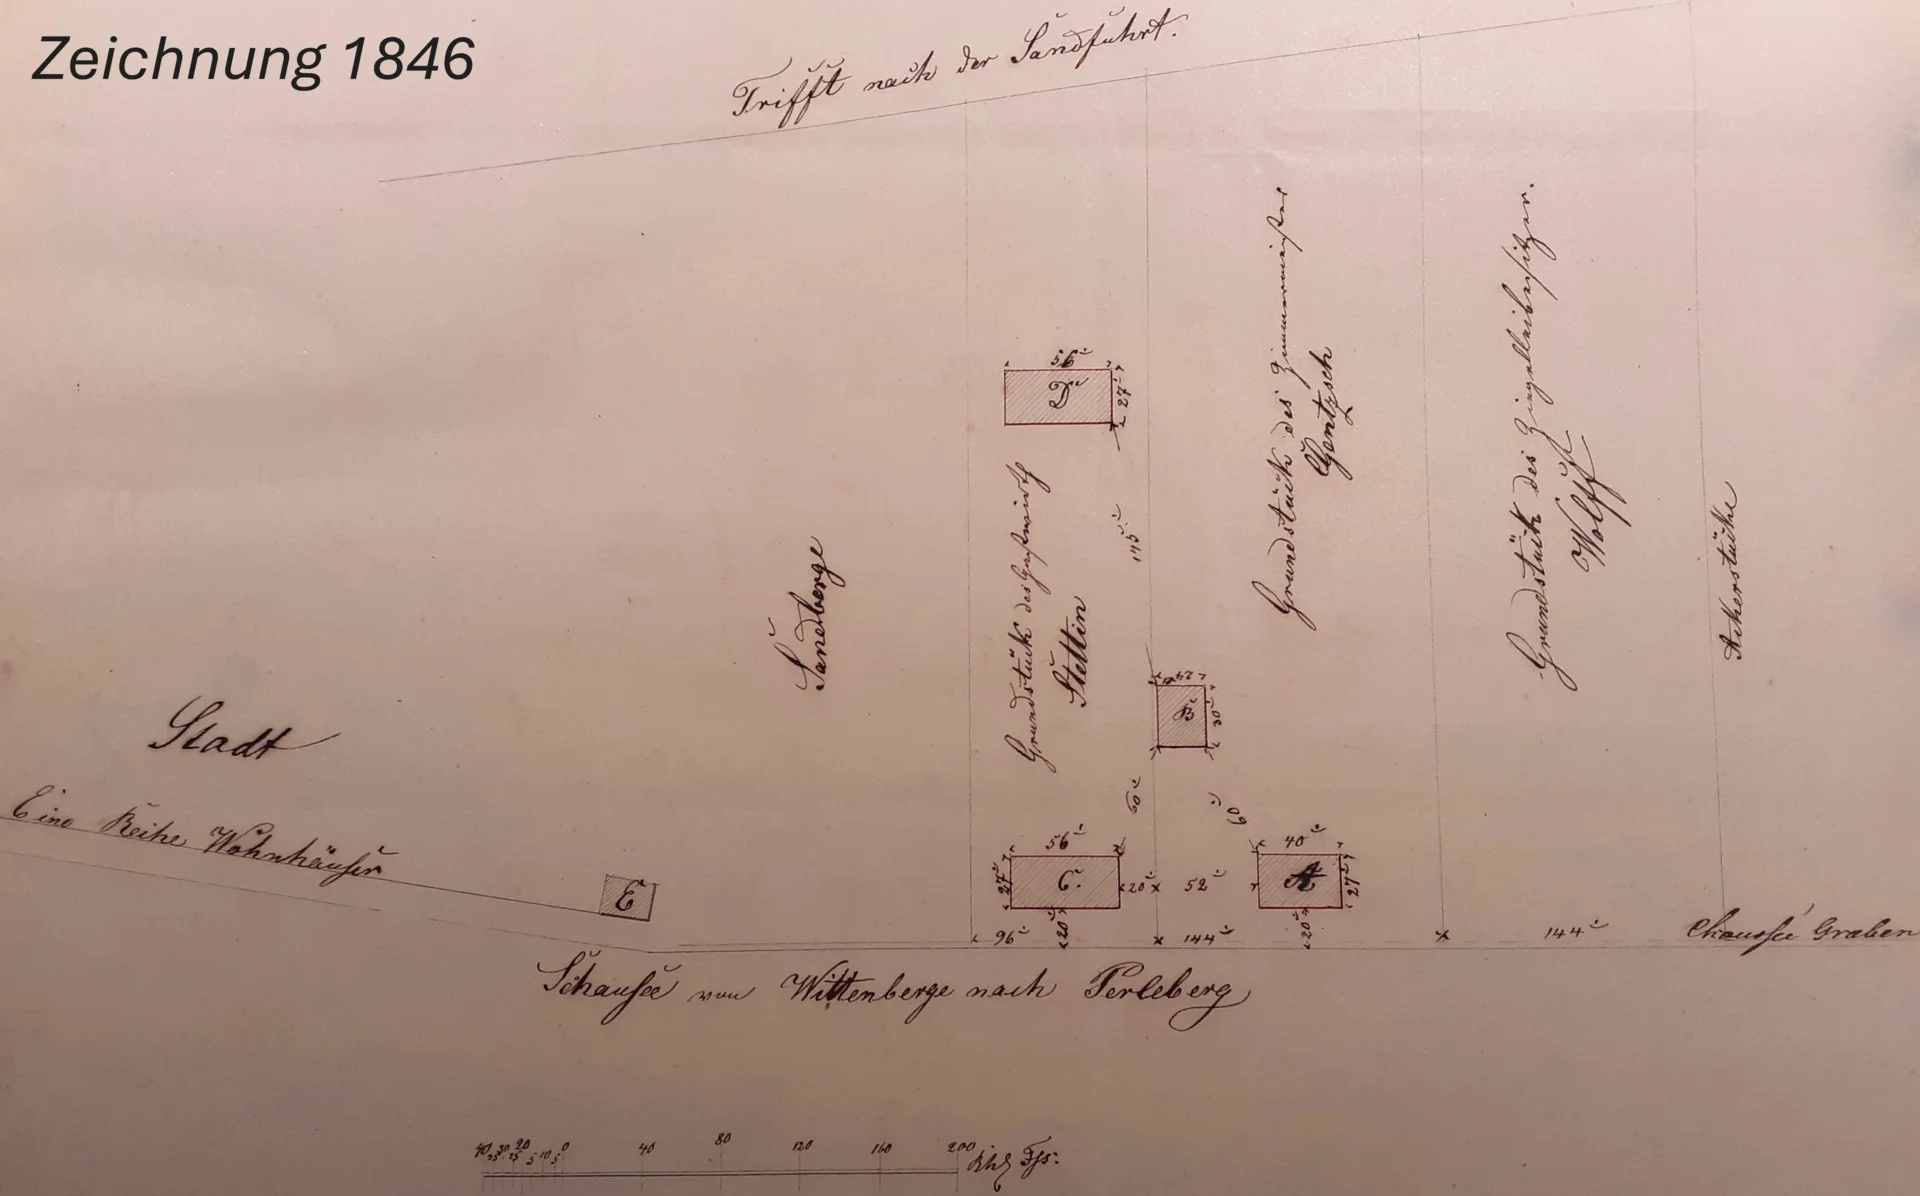 Zeichnung 1846
Trifft nach der Sandfuhrt.
56'
D
27'
Grundstück des Gastwirth
Stettin
145'
Grundstück des Zimmermeister
Gentzsch
Grundstück des Ziegelleibesitzer.
Wolff
Ackerstücke
Sandberge
Stadt
Eine Reihe Wohnhäuser
E
24'
B
30'
60'
60'
56'
27'
C.
20'
52'
40'
A
27'
20'
20'
96'
144'
144'
Chaussée Graben
Schausee von Wittenberge nach Perleberg
40 30 20 10 0 40 80 120 160 200
35 25 15 5